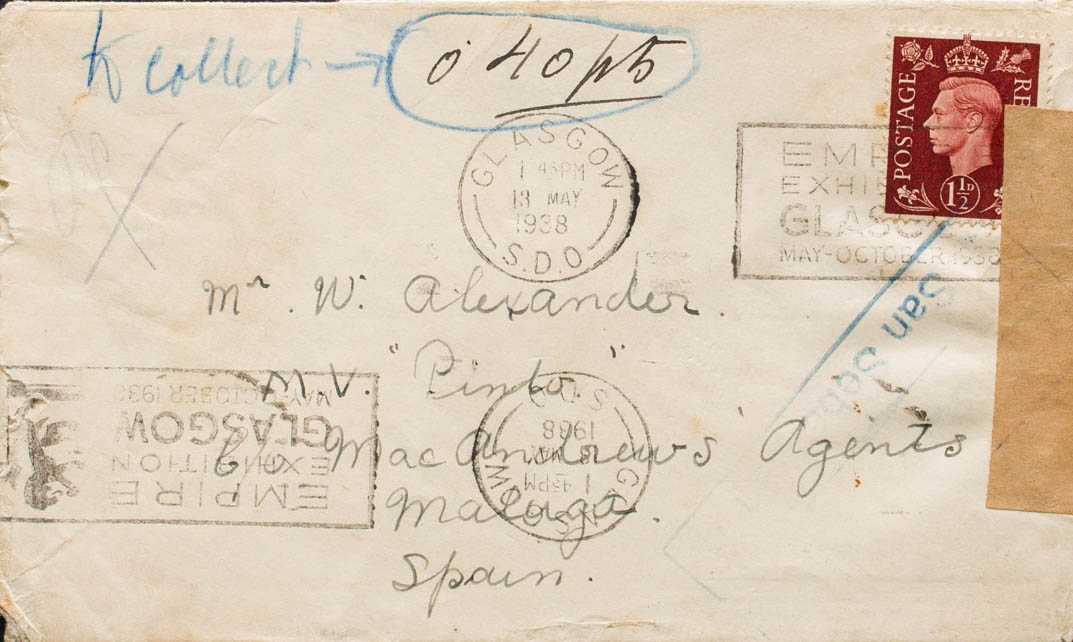 to collect → 0'40 pts
POSTAGE RE
1½D
GLASGOW
1 45PM
13 MAY
1938
S.D.O
EMP
EXHI
GLASG
MAY-OCTOBER 1938
Mr. W. Alexander.
"Pinto."
c/o MacAndrews' Agents
Malaga.
Spain.
San Seb
EMPIRE
EXHIBITION
GLASGOW
MAY-OCTOBER 1938
GLASGOW
1 45PM
13 MAY
1938
S.D.O